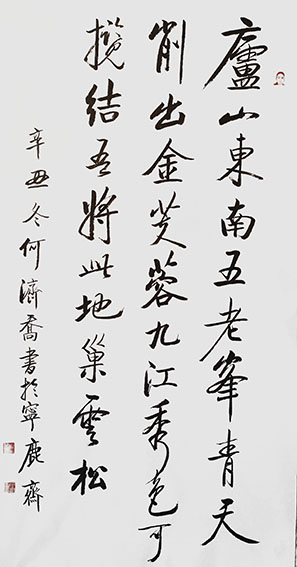 廬山東南五老峯青天
削出金芙蓉九江秀色可
攬結吾將此地巢雲松
辛丑冬何濟喬書於寧鹿齋